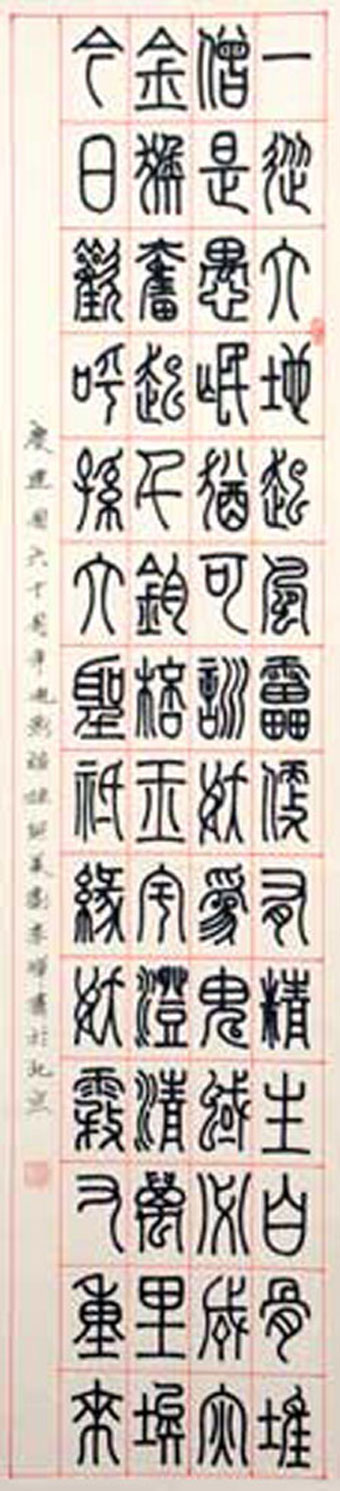 一從大地起風雷便有精生白骨堆
僧是愚氓猶可訓妖爲鬼蜮必成災
金猴奮起千鈞棓玉宇澄清萬里埃
今日歡呼孫大聖祇緣妖霧又重來
慶建國六十周年 書於北京